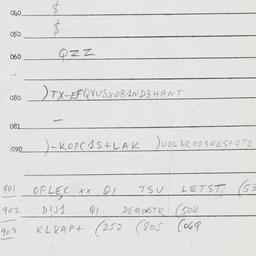 040 $
050 $
060 QZZ
080 )TX-EFQVUSXOB1ND3HANT
081 –
090 )-KOPC1S+LAK )UDL3ROD3RES+1T1
901 OFLEC xx Q1 TSU LETST (53
902 D1J1 Q1 DEMOSTR (504
903 KL8AP+ (252 (805 (069